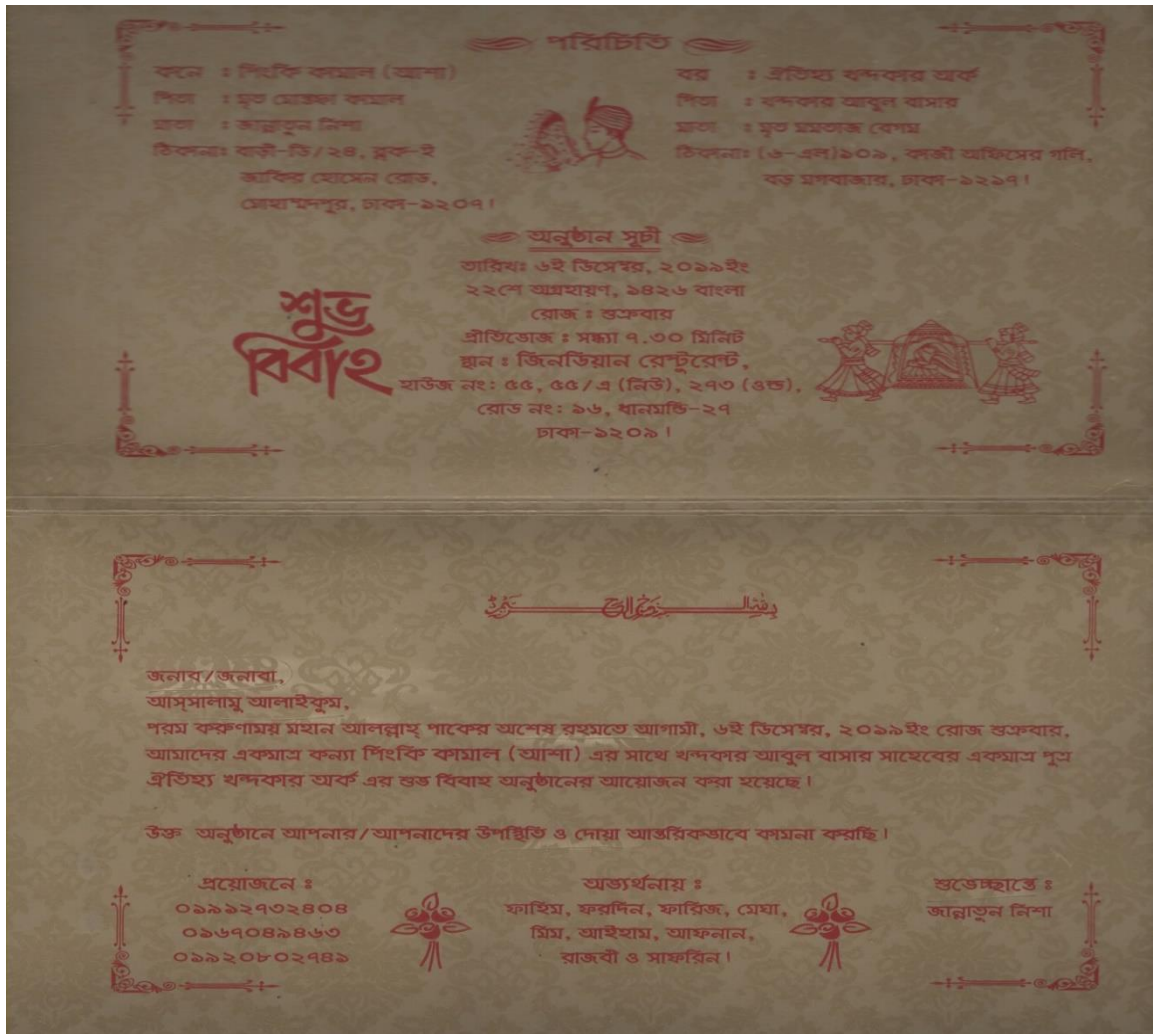 পরিচিতি
কনে : পিংকি কামাল (আশা)
পিতা : মৃত মোস্তফা কামাল
মাতা : জান্নাতুন নিশা
ঠিকানাঃ বাড়ী-ডি/২৪, ব্লক-ই
জাকির হোসেন রোড,
মোহাম্মদপুর, ঢাকা-১২০৭।
বর : ঐতিহ্য খন্দকার অর্ক
পিতা : খন্দকার আবুল বাসার
মাতা : মৃত মমতাজ বেগম
ঠিকানাঃ (৬-এল)১০১, কাজী অফিসের গলি,
বড় মগবাজার, ঢাকা-১২১৭।
অনুষ্ঠান সূচী
তারিখঃ ৬ই ডিসেম্বর, ২০১৯ইং
২২শে অগ্রহায়ণ, ১৪২৬ বাংলা
রোজ : শুক্রবার
প্রীতিভোজ : সন্ধ্যা ৭.৩০ মিনিট
স্থান : জিনডিয়ান রেস্টুরেন্ট,
হাউজ নং: ৫৫, ৫৫/এ (নিউ), ২৭৩ (ওল্ড),
রোড নং: ১৬, ধানমন্ডি-২৭
ঢাকা-১২০৯।
শুভ
বিবাহ
بسم الله الرحمن الرحيم
জনাব/জনাবা,
আস্সালামু আলাইকুম,
পরম করুণাময় মহান আলল্লাহ্ পাকের অশেষ রহমতে আগামী, ৬ই ডিসেম্বর, ২০১৯ইং রোজ শুক্রবার,
আমাদের একমাত্র কন্যা পিংকি কামাল (আশা) এর সাথে খন্দকার আবুল বাসার সাহেবের একমাত্র পুত্র
ঐতিহ্য খন্দকার অর্ক এর শুভ বিবাহ অনুষ্ঠানের আয়োজন করা হয়েছে।
উক্ত অনুষ্ঠানে আপনার/আপনাদের উপস্থিতি ও দোয়া আন্তরিকভাবে কামনা করছি।
প্রয়োজনে :
০১৯১২৭৩২৪০৪
০১৬৭০৪৯৪৬৩
০১৯২০৮০২৭৪১
অভ্যর্থনায় :
ফাহিম, ফরদিন, ফারিজ, মেঘা,
মিম, আইহাম, আফনান,
রাজবী ও সাফরিন।
শুভেচ্ছান্তে :
জান্নাতুন নিশা